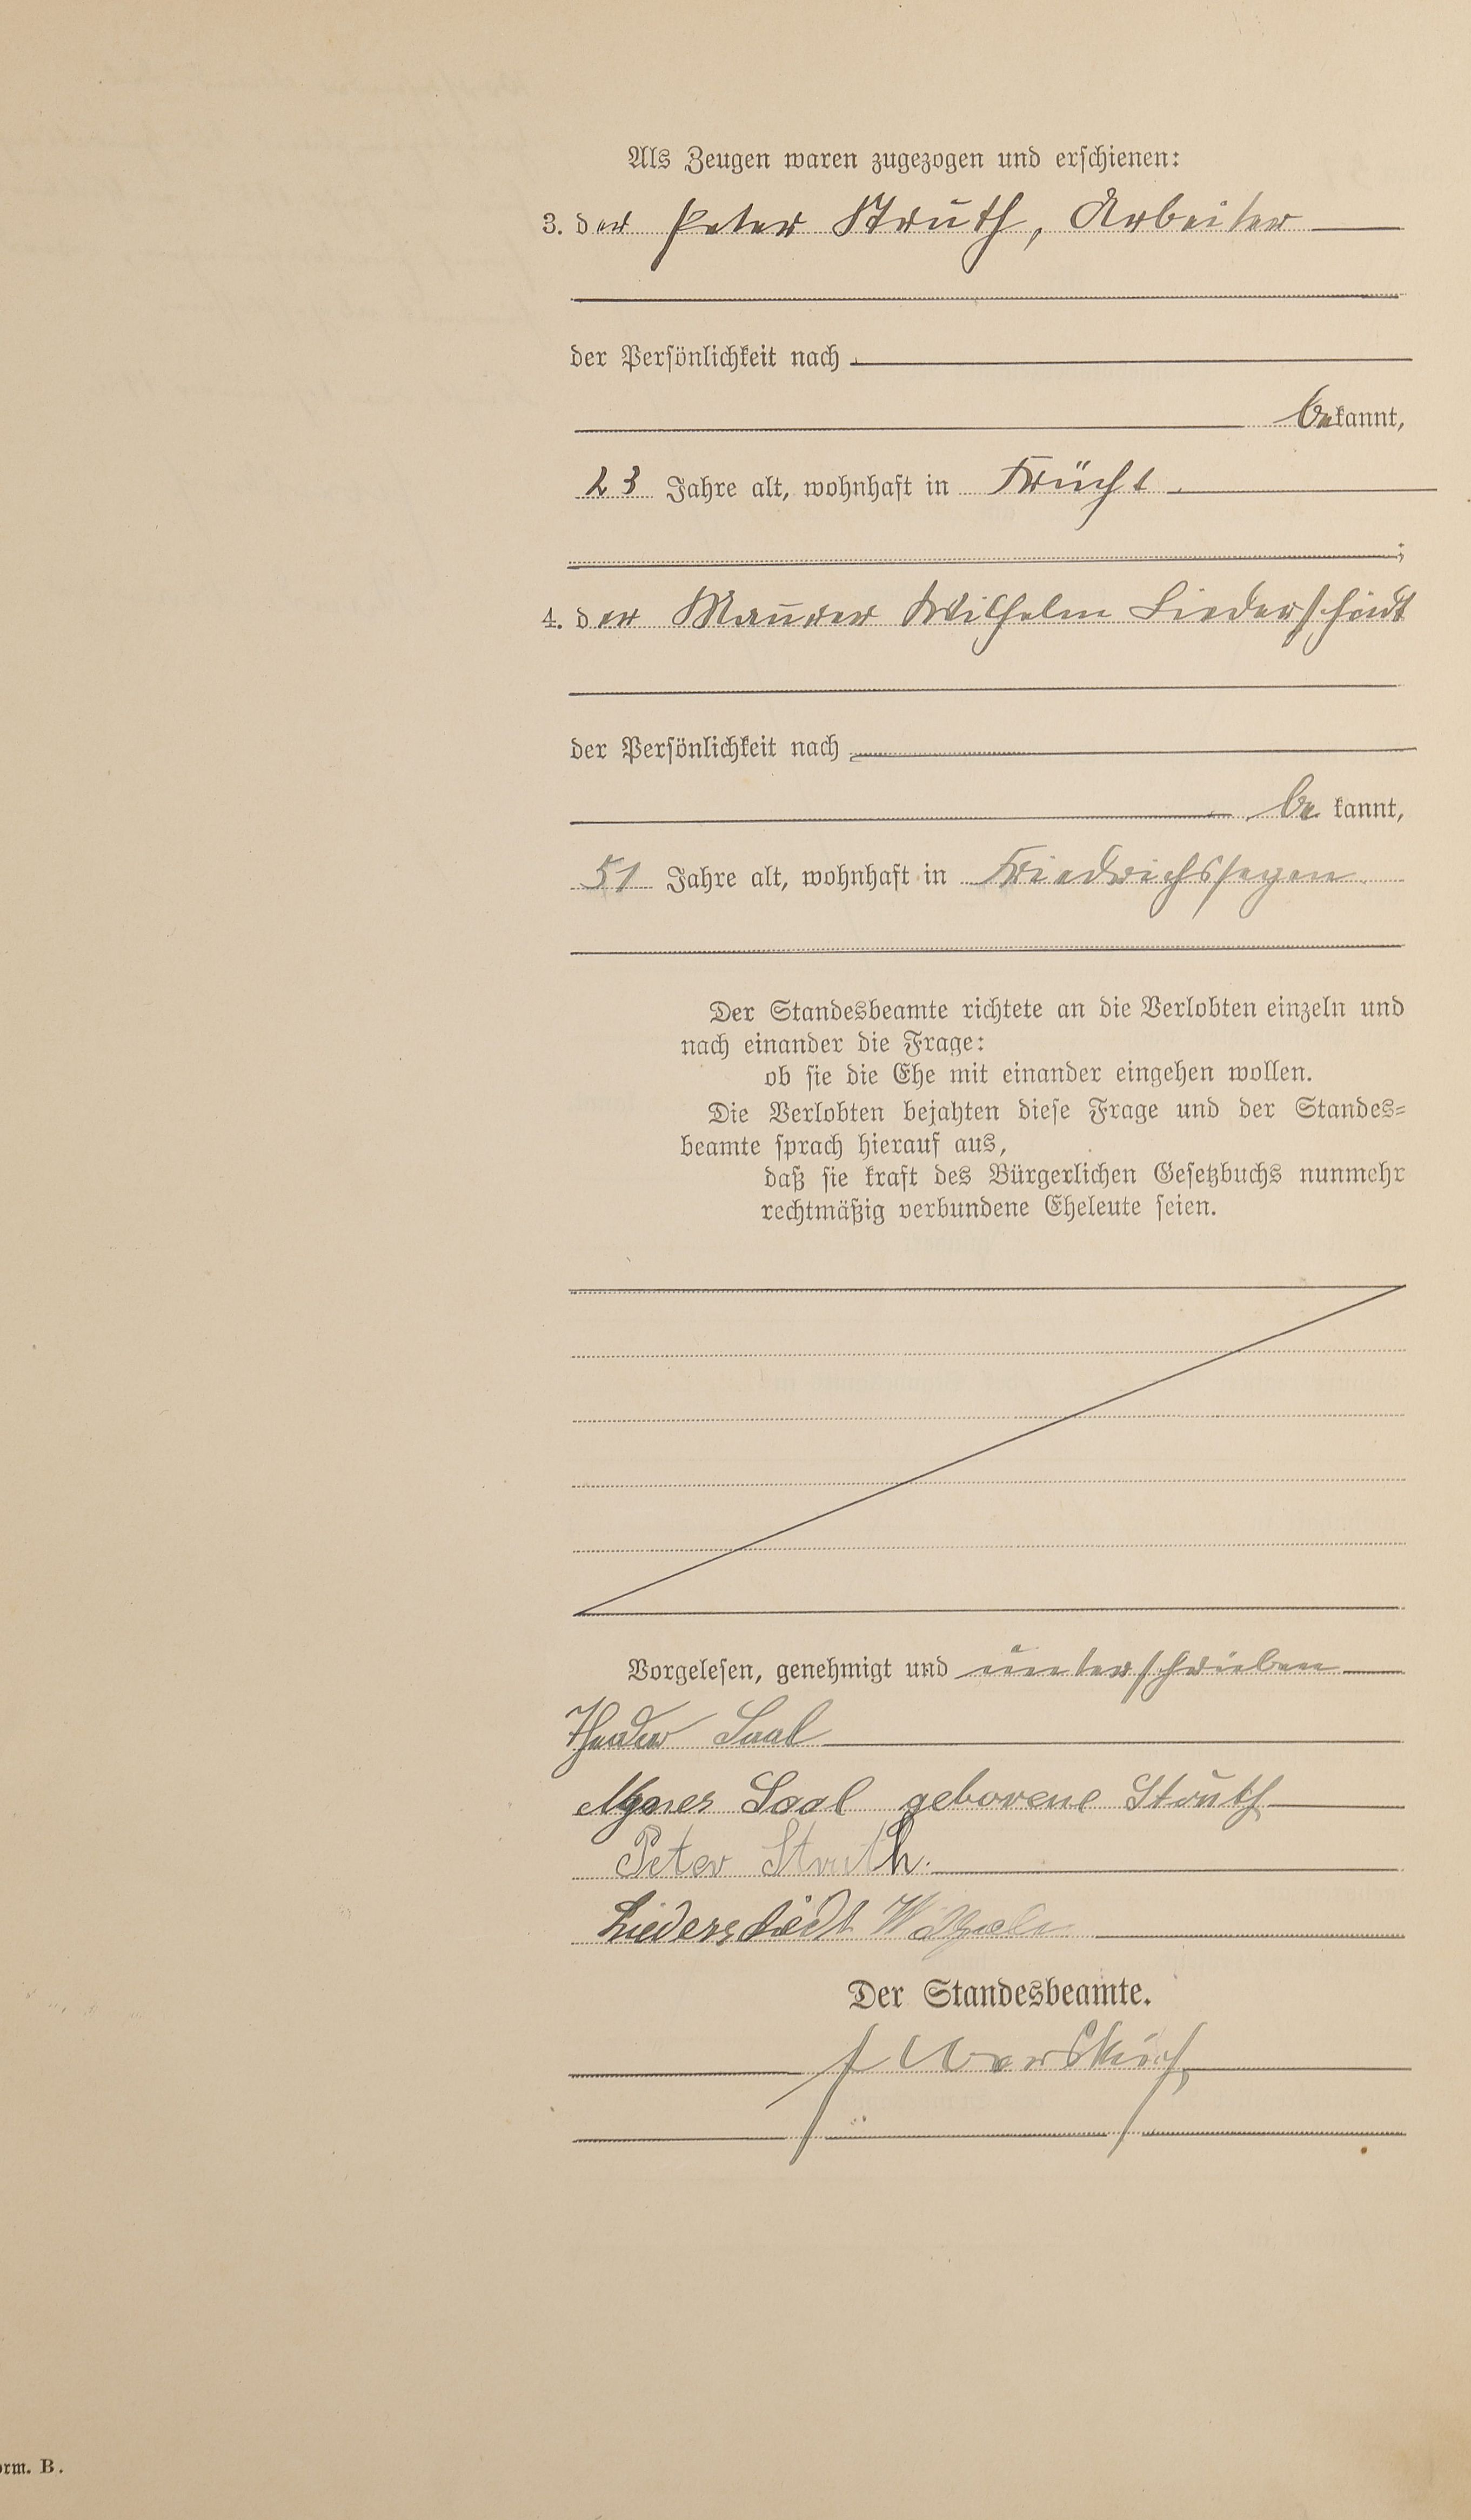 Als Zeugen waren zugezogen und erschienen:
3. der Peter Struth, Arbeiter
der Persönlichkeit nach
bekannt,
23 Jahre alt, wohnhaft in Frücht
;
4. der Maurer Wilhelm Liederschädt
der Persönlichkeit nach
be kannt,
51 Jahre alt, wohnhaft in Friedrichssegen
Der Standesbeamte richtete an die Verlobten einzeln und
nach einander die Frage:
ob sie die Ehe mit einander eingehen wollen.
Die Verlobten bejahten diese Frage und der Standes=
beamte sprach hierauf aus,
daß sie kraft des Bürgerlichen Gesetzbuchs nunmehr
rechtmäßig verbundene Eheleute seien.
Vorgelesen, genehmigt und unterschrieben
Saal
Agnes Saal geborene Struth
Peter Struth.
Wilhelm
Der Standesbeamte.
orm. B.